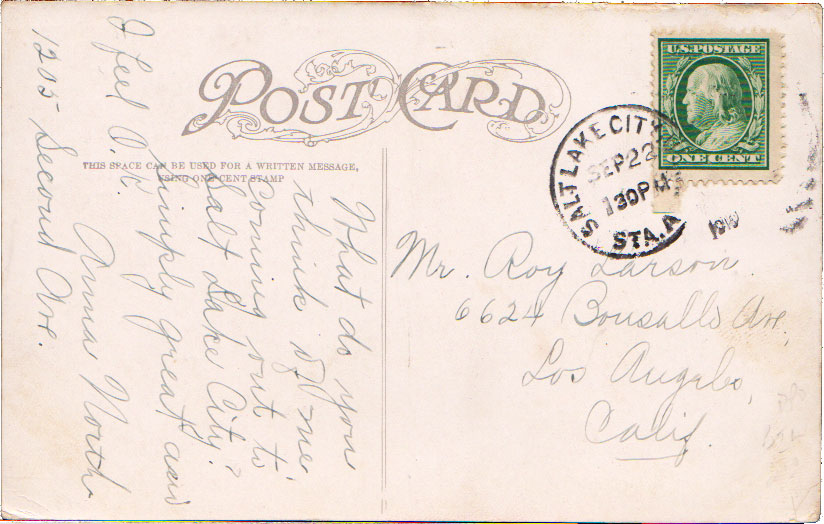 POST CARD
THIS SPACE CAN BE USED FOR A WRITTEN MESSAGE,
USING ONE CENT STAMP
U.S. POSTAGE
ONE CENT
SALT LAKE CITY
SEP 22
130 PM
STA. A
1910
What do you
think of me
coming out to
Salt Lake City?
Simply great and
I feel O.K.
Anna North
1205 Second Ave.
Mr. Roy Larson.
6624 Bonsallo Ave,
Los Angeles,
Calif.